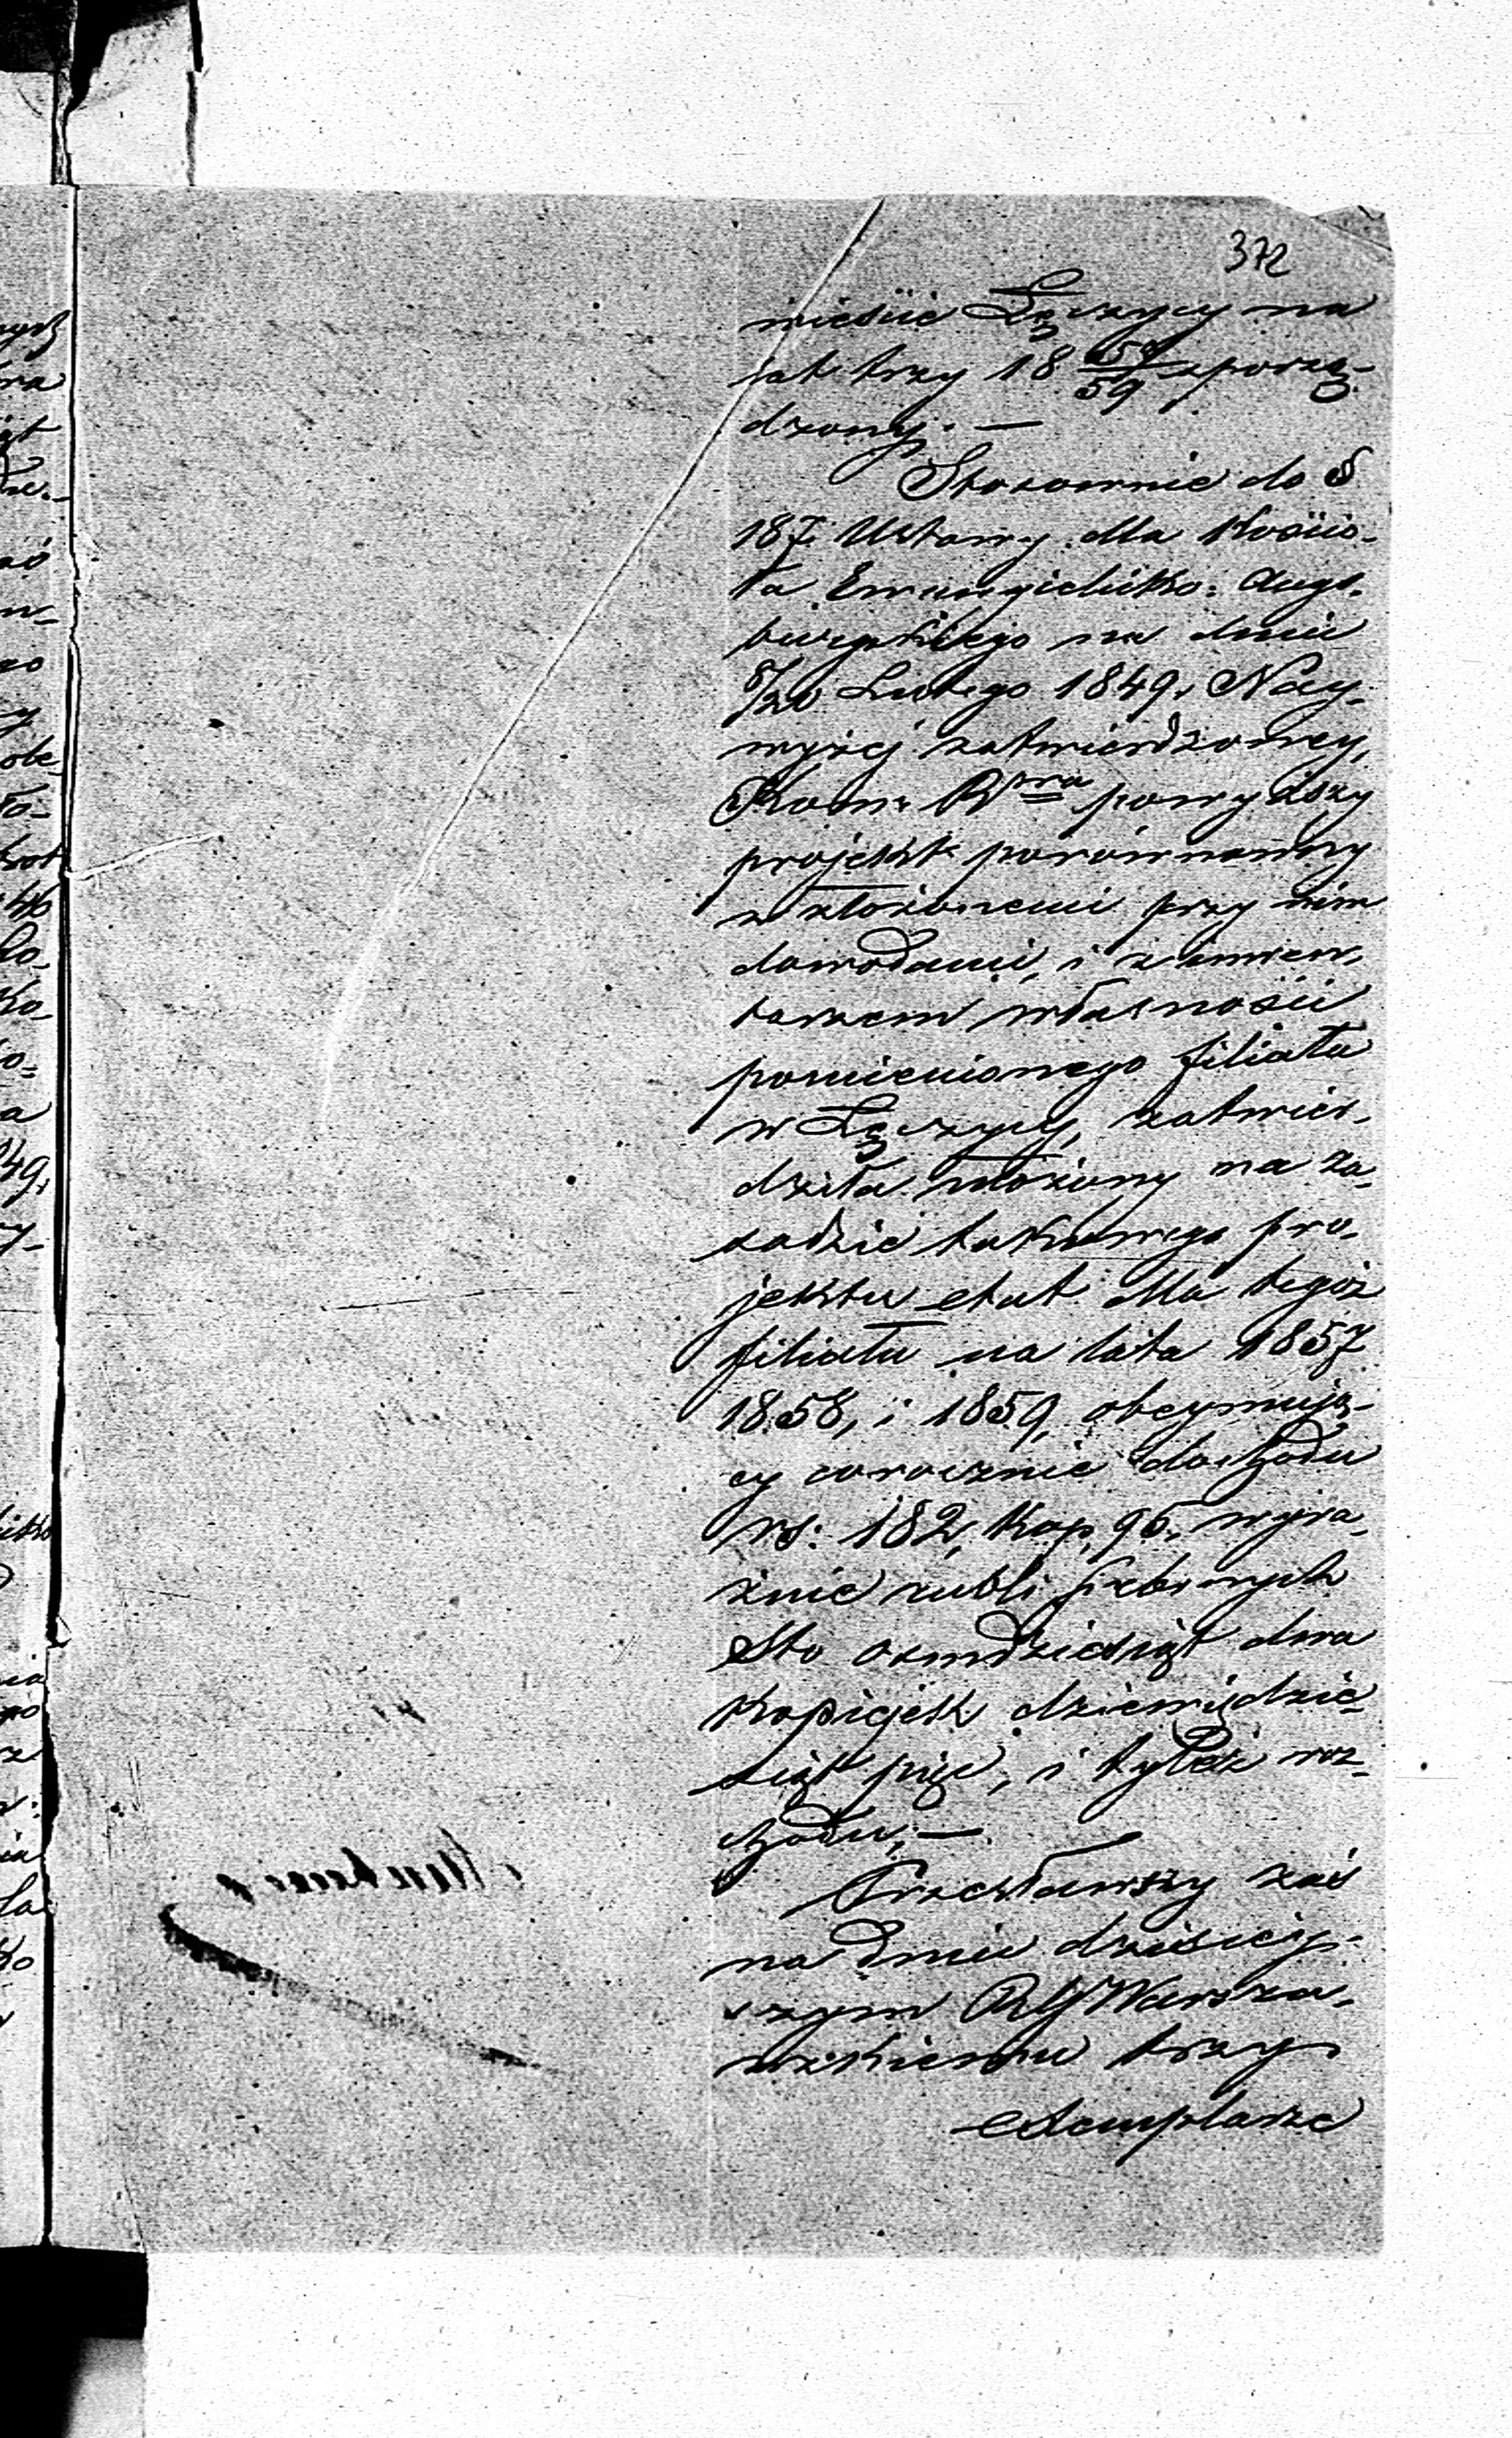 372
mieście Łęczycy na
lat trzy 18 57/59 sporzą-
dzony. —
Stosownie do §
187. Ustawy dla Kościo-
ła Ewangielicko: Augs-
burgskiego na dniu
8/20 Lutego 1849, Nay-
wyżej zatwierdzoney,
Kom: Rz powyższy
projekt porównawszy
z złożonemi przy nim
dowodami, i z inwen-
tarzem własności
pomienionego filiału
w Łęczycy, zatwier-
dziła ułożony na za-
sadzie takowego pro-
jektu etat dla tegoż
filiału na lata 1857
1858, i 1859, obeymują-
cy corocznie dochodu
rs: 182, kop, 95, wyra-
źnie rubli srebrnych
Sto ośmdziesiąt dwa
kopiejek dziewiędzie-
siąt pięć, i tyleż roz-
chodu; —
Przesławszy zaś
na dniu dzisiey-
szym RG Warsza-
wskiemu trzy
exemplarze